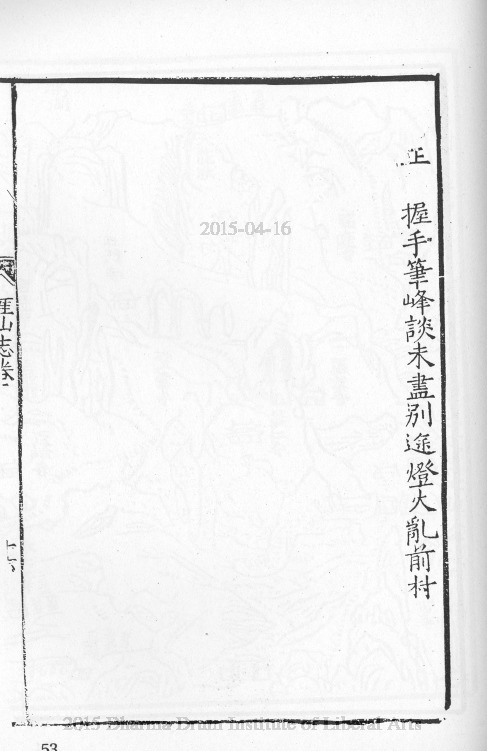 正 握手筆峰談未盡別途燈火亂前村
山志卷
十六
2015-04-16
2015 Dharma Drum Institute of Liberal Arts
53